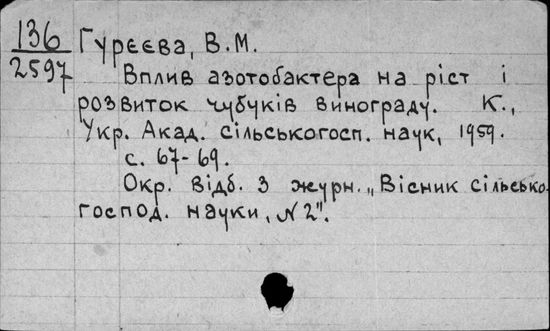 136
2597
Гурєєва, В.М.
Вплив азотобактера на ріст і
розвиток чубуків винограду. К.,
Укр. Акад. сільськогосп. наук, 1959.
с. 67-69.
Окр. відб. з журн. „Вісник сільсько-
господ. науки, №2".